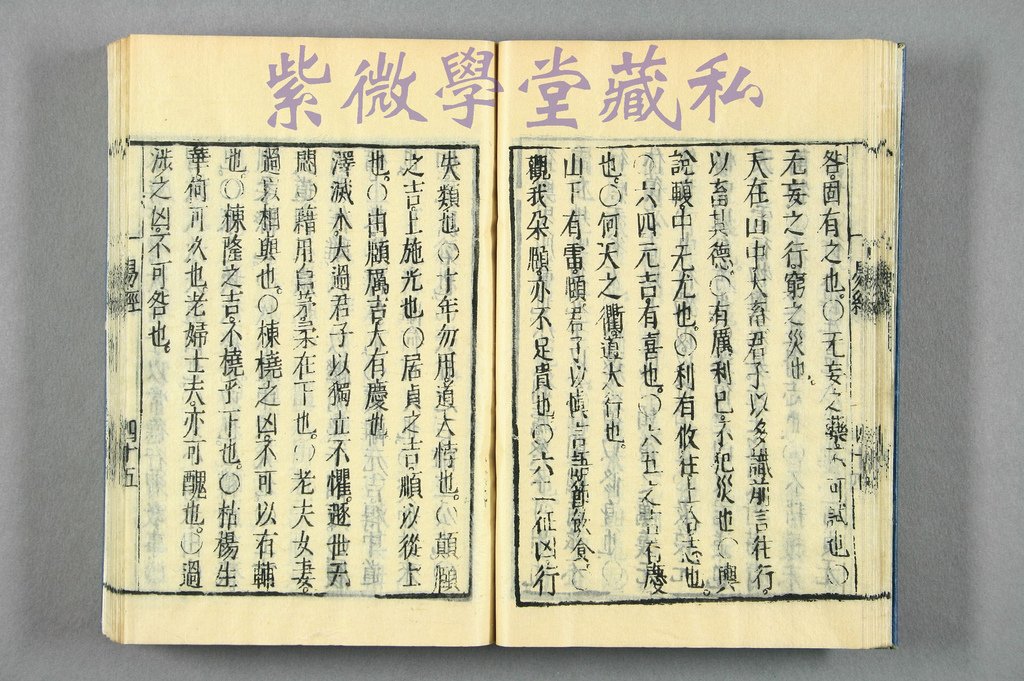 紫微學堂藏私
易經
咎。固有之也。〇无妄之藥不可試也〇
无妄之行。窮之災也。
天在山中大畜君子以多識前言往行。
以畜其德。〇有厲利巳。不犯災也〇輿
說輹。中无尤也。〇利有攸往上合志也。
〇六四元吉。有喜也。〇六五之吉有慶
也。〇何天之衢。道大行也。
山下有雷頤。君子以慎言語節飲食。〇
觀我朵頤。亦不足貴也〇六二征凶行
失類也〇十年勿用。道大悖也。〇顛頤
之吉。上施光也〇居貞之吉。順以從上
也。〇由頤厲吉。大有慶也
澤滅木。大過君子以獨立不懼。遯世无
悶〇藉用白茅。柔在下也。〇老夫女妻。
過以相與也。〇棟橈之凶。不可以有輔
也。〇棟隆之吉。不橈乎下也。〇枯楊生
華。何可久也老婦士夫。亦可醜也。〇過
涉之凶。不可咎也。
易經 四十五